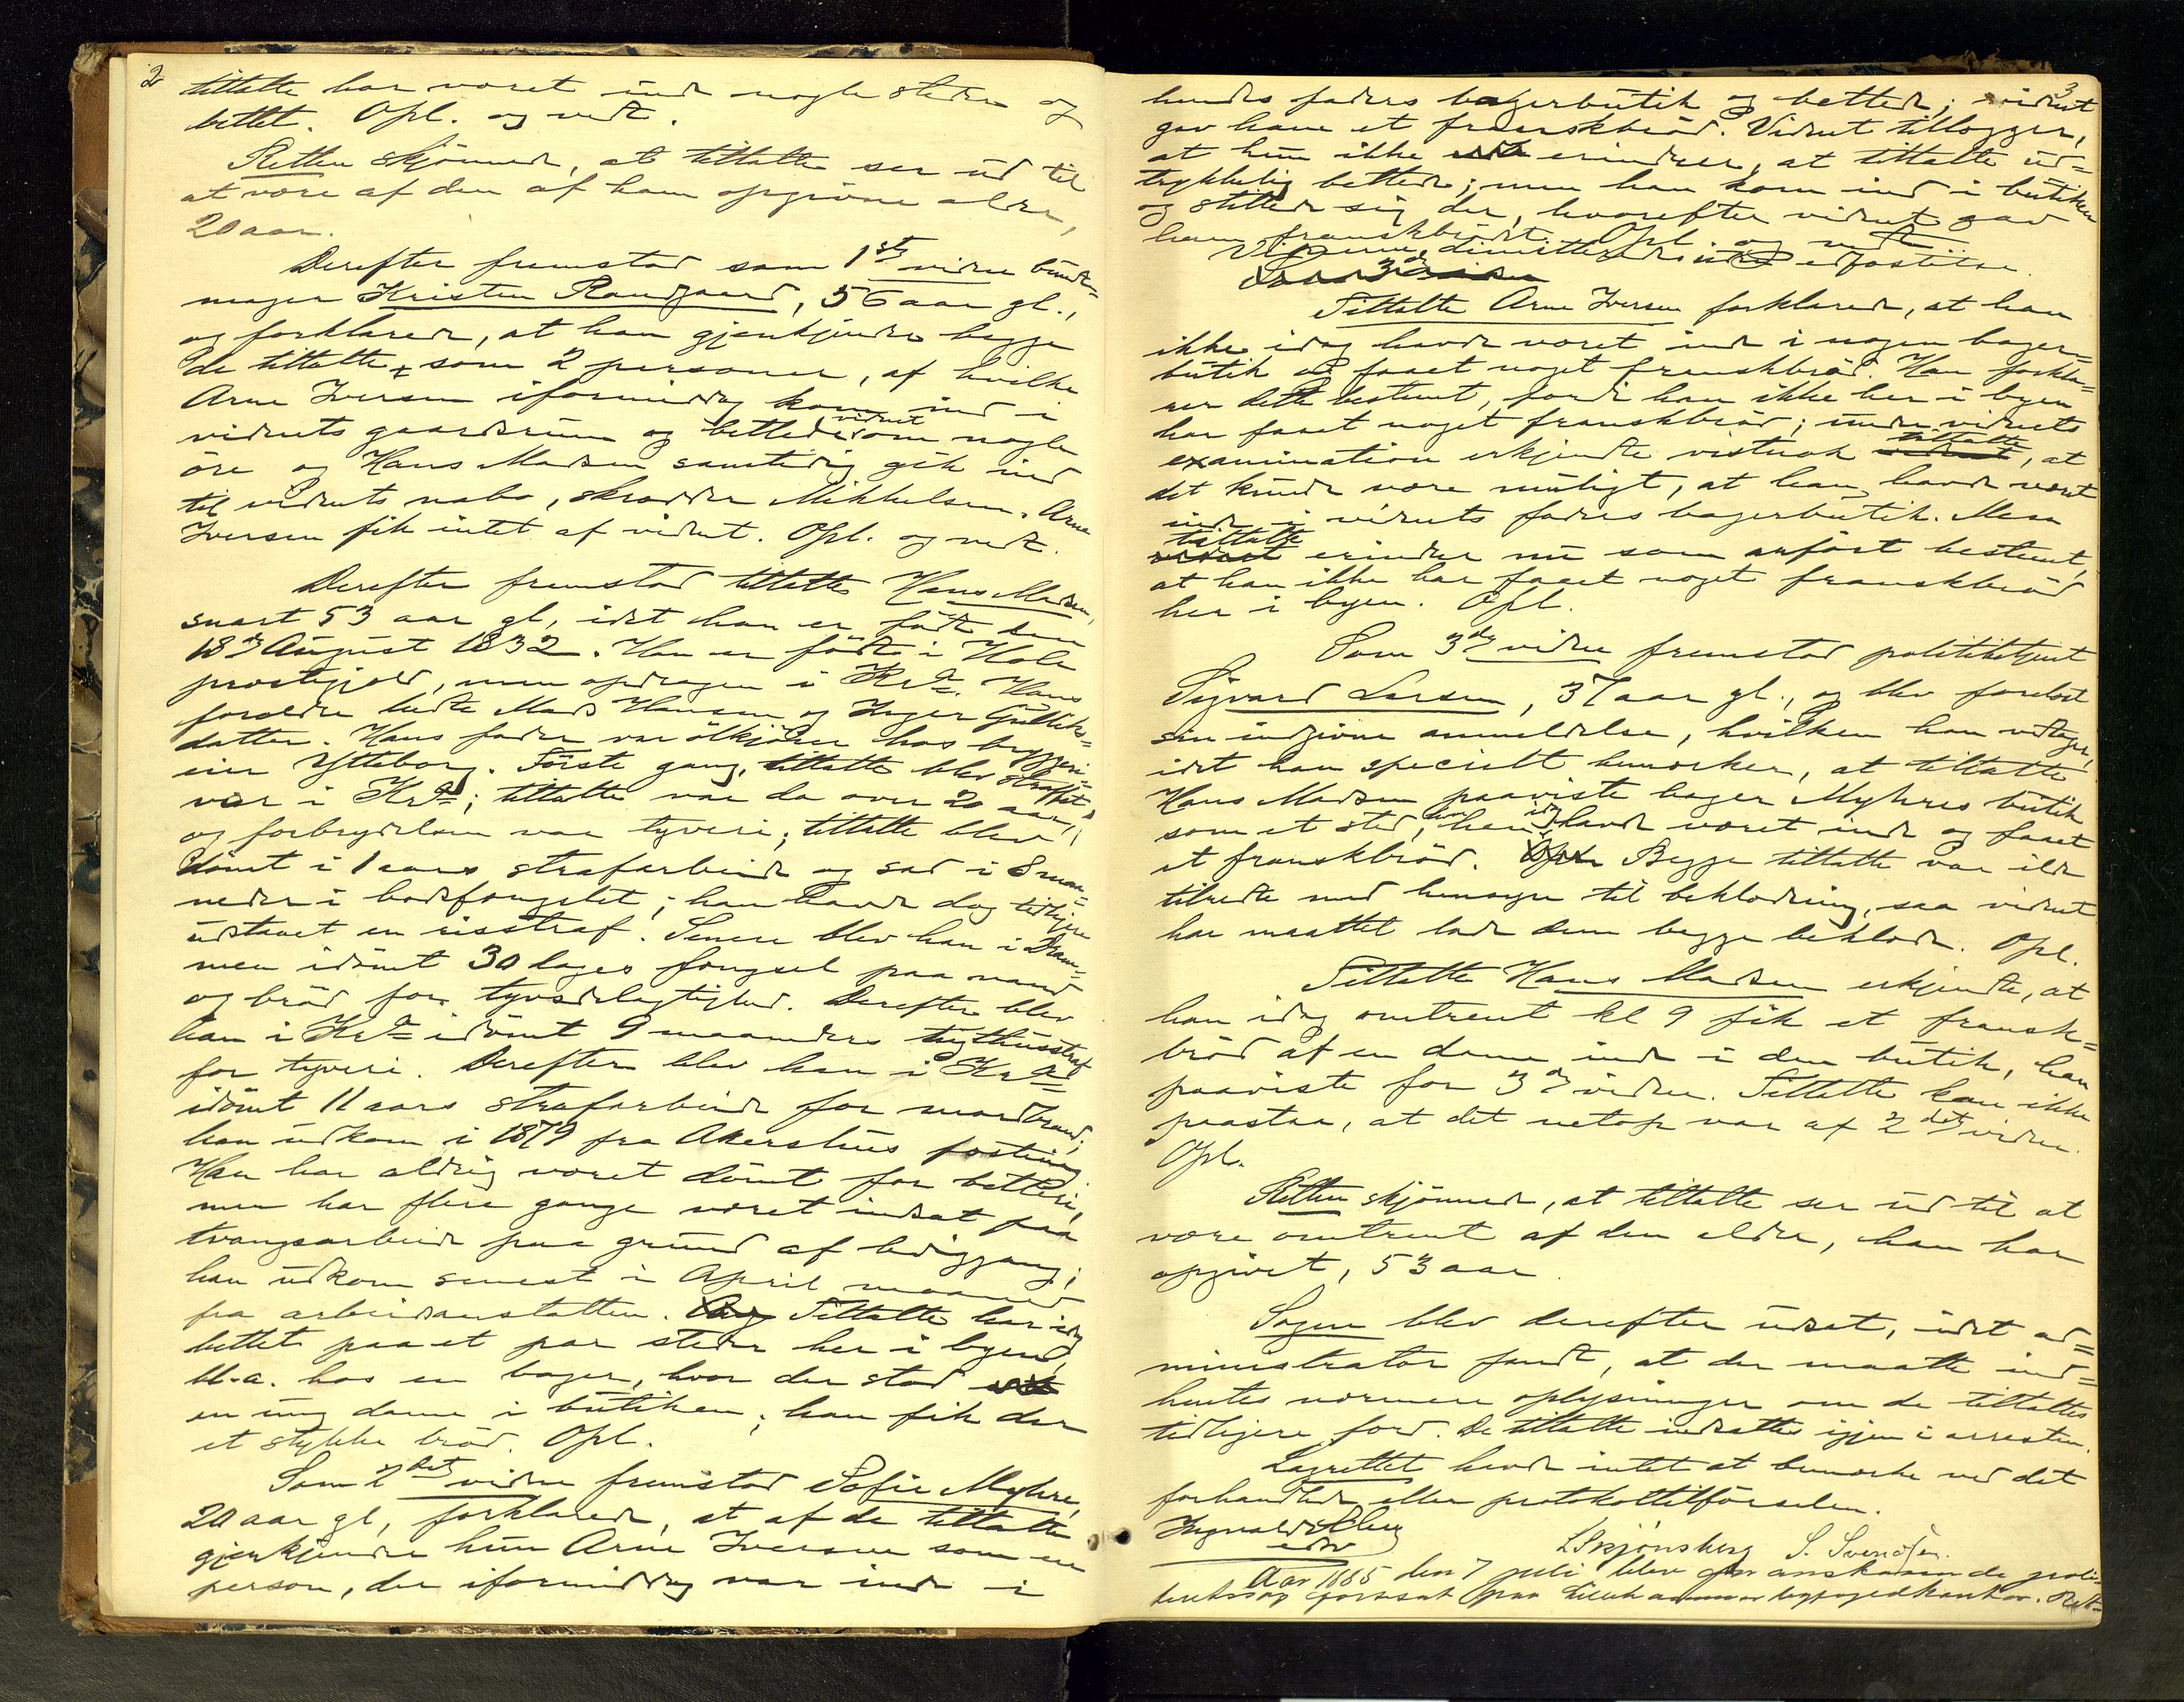 2
tiltalte har været inde nogle steder og
bettlet. Opl. og vedt.
Retten skjønner, at tiltalte ser ud til
at være af den af ham opgivne alder,
20 aar.
Derefter fremstod som 1ste vidne bundt-
mager Kristen Randgaard, 56 aar gl.,
og forklarede, at han gjenkjender begge
de tiltalte som 2 personer, af hvilke
Arne Iversen iformiddag kom ind i
vidnets gaardsrum og bettlede vidnet om nogle
øre og Hans Madsen samtidig gik ind
til vidnets nabo, skrædder Mikkelsen. Arne
Iversen fik intet af vidnet. Opl. og vedt.
Derefter fremstod tiltalte Hans Madsen,
snart 53 aar gl, idet han er født den
18de August 1832. Han er født i Hole
præstegjeld, men opdragen i Kr.a. Hans
forældre hedte Mads Hansen og Inger Gulliks-
datter. Hans fader var ølkjører hos bryggeri-
eier Ytteborg. Første gang, tiltalte blev straffet,
var i Kr.a; tiltalte var da over 20 aar,
og forbrydelsen var tyveri; tiltalte blev
dømt i 1 aars strafarbeide og sad i 8 maa-
neder i bodsfængslet; han havde dog tidligere
udstaaet en risstraf. Senere blev han i Dram-
men idømt 30 dages fængsel paa vand
og brød for tyvsdelagtighed. Derefter blev
han i Kr.a idømt 9 maaneders tugthusstraf
for tyveri. Derefter blev han i Kr.a
idømt 11 aars strafarbeide for mordbrand;
han udkom i 1879 fra Akershus fæstning
Han har aldrig været dømt for betleri,
men har flere gange været indsat paa
tvangsarbeide paa grund af lediggang;
han udkom senest i April maaned
fra arbeidsanstalten. Tiltalte har idag
bettlet paa et par steder her i byen,
bl.a. hos en bager, hvor der stod
en ung dame i butiken; han fik der
et stykke brød. Opl.
Som 2det vidne fremstod Sofie Myhre,
20 aar gl, forklarede, at af de tiltalte
gjenkjender hun Arne Iversen som en
person, der iformiddag var inde i
3
hendes faders bagerbutik og bettlede; vidnet
gav ham et franskbrød. Vidnet tillægger,
at hun ikke erindrer, at tiltalte ud-
trykkelig bettlede; men han kom ind i butiken
og stillede sig der, hvorefter vidnet gav
ham franskbrødet. Opl. og vedt.
Vidnerne dimitteredes uden edfæstelse.
Som 3de vidne
Tiltalte Arne Iversen forklarede, at han
ikke idag havde været inde i nogen bager-
butik og faaet noget franskbrød. Han forkla-
rer dette bestemt, fordi han ikke her i byen
har faaet noget franskbrød; under vidnets
examination erkjendte vistnok tiltalte, at
det kunde være muligt, at han havde været
inde i vidnets faders bagerbutik. Men
tiltalte erindrer nu som anført bestemt,
at han ikke har faaet noget franskbrød
her i byen. Opl.
Som 3die vidne fremstod politibetjent
Sigvard Larsen, 37 aar gl., og blev forelæst
sin indgivne anmeldelse, hvilken han vedtager,
idet han specielt bemærker, at tiltalte
Hans Madsen paaviste bager Myhres butik
som et sted, hvor han idag havde været inde og faaet
et franskbrød. Begge tiltalte var ilde
tilredte med hensyn til beklædning, saa vidnet
har maattet lade dem begge beklæde. Opl.
Tiltalte Hans Madsen erkjendte, at
han idag omtrent kl 9 fik et fransk-
brød af en dame inde i den butik, han
paaviste for 3die vidne. Tiltalte kan ikke
paastaa, at det netop var af 2det vidne.
Opl.
Retten skjønnede, at tiltalte ser ud til at
være omtrent af den alder, han har
opgivet, 53 aar.
Sagen blev derefter udsat, idet ad-
ministrator fandt, at der maatte ind-
hentes nærmere oplysninger om de tiltaltes
tidligere færd. De tiltalte indsattes igjen i arresten.
Lagrettet havde intet at bemærke ved det
forhandlede eller protokoltilførselen.
L Skjønsberg S. Svendsen.
Aar 1885 den 7 juli blev
fortsat paa Lillehammer byfogedkontor. Ret-